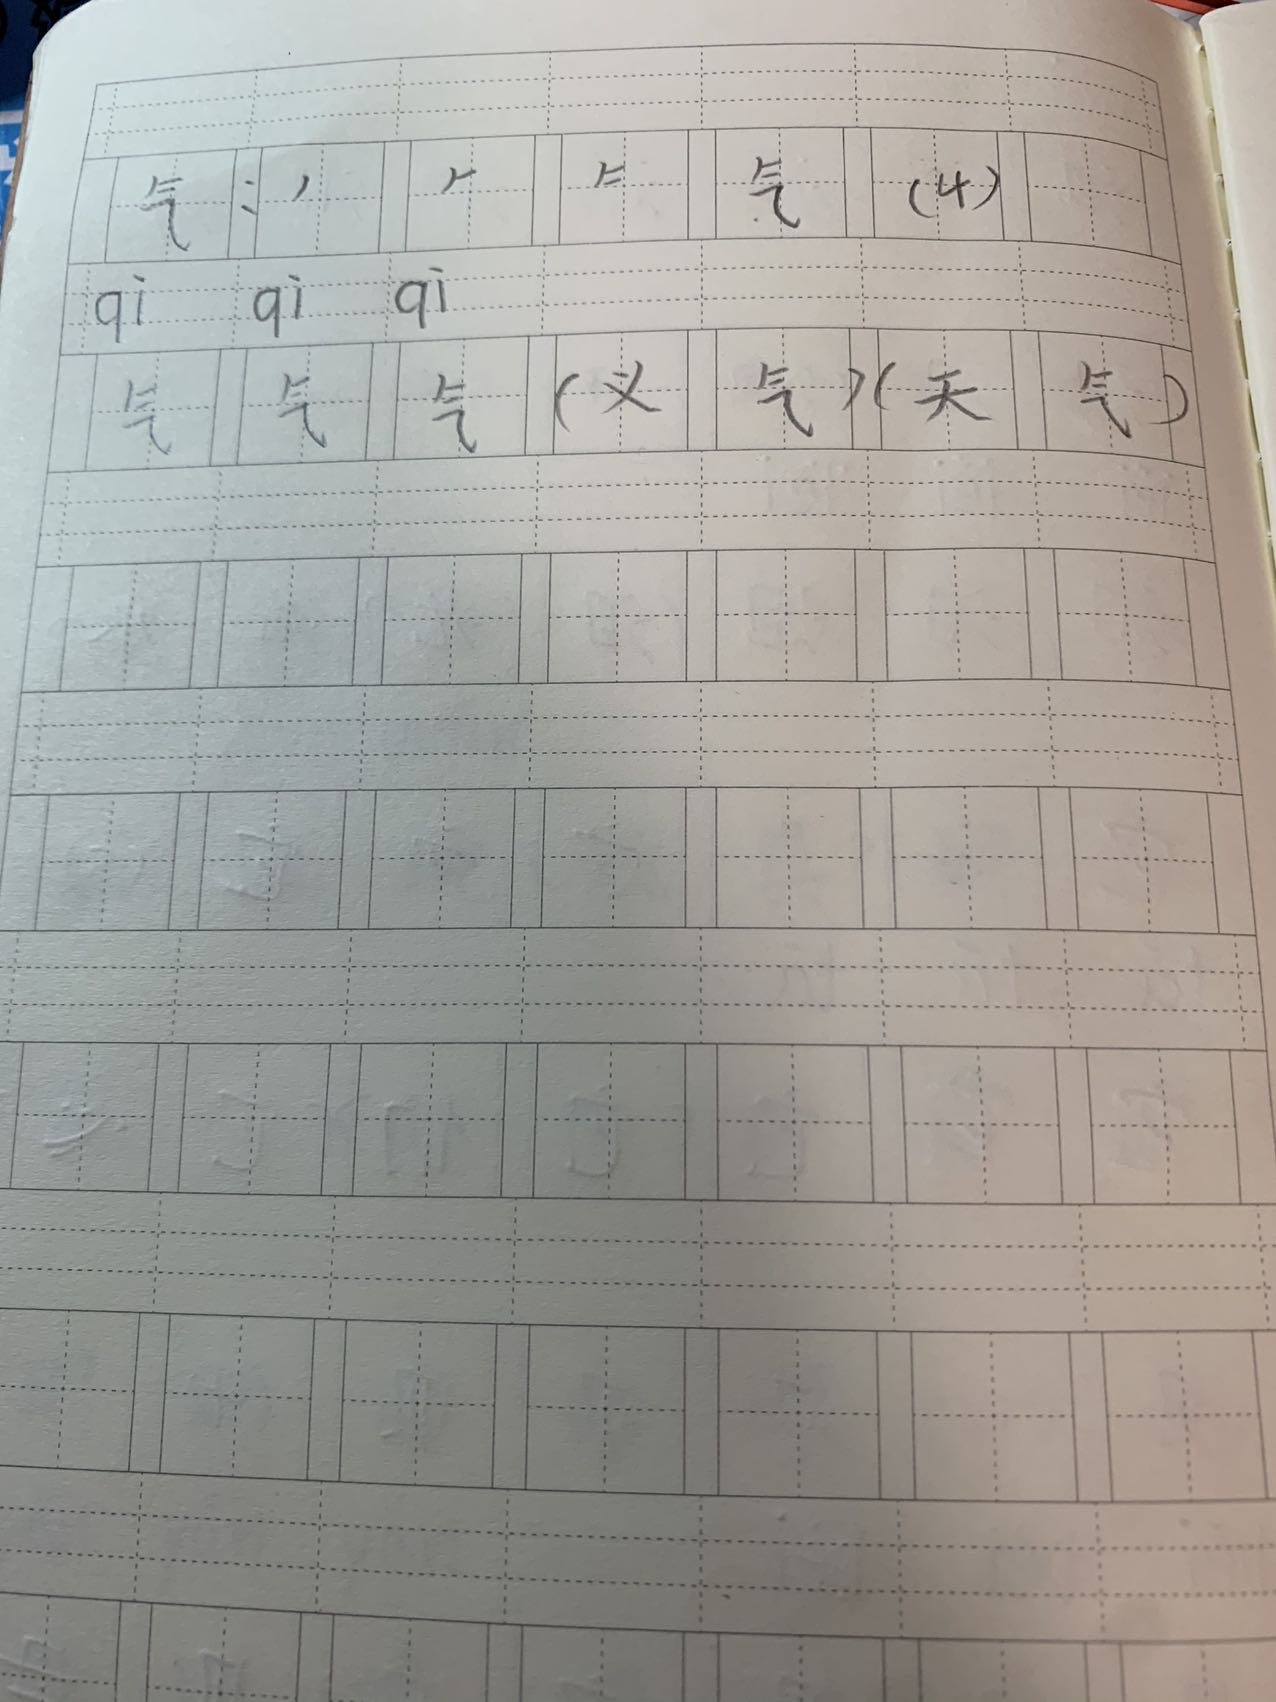 气：丿 𠂉 气 (4)
qì qì qì
气 气 气 (义 气)(天 气)